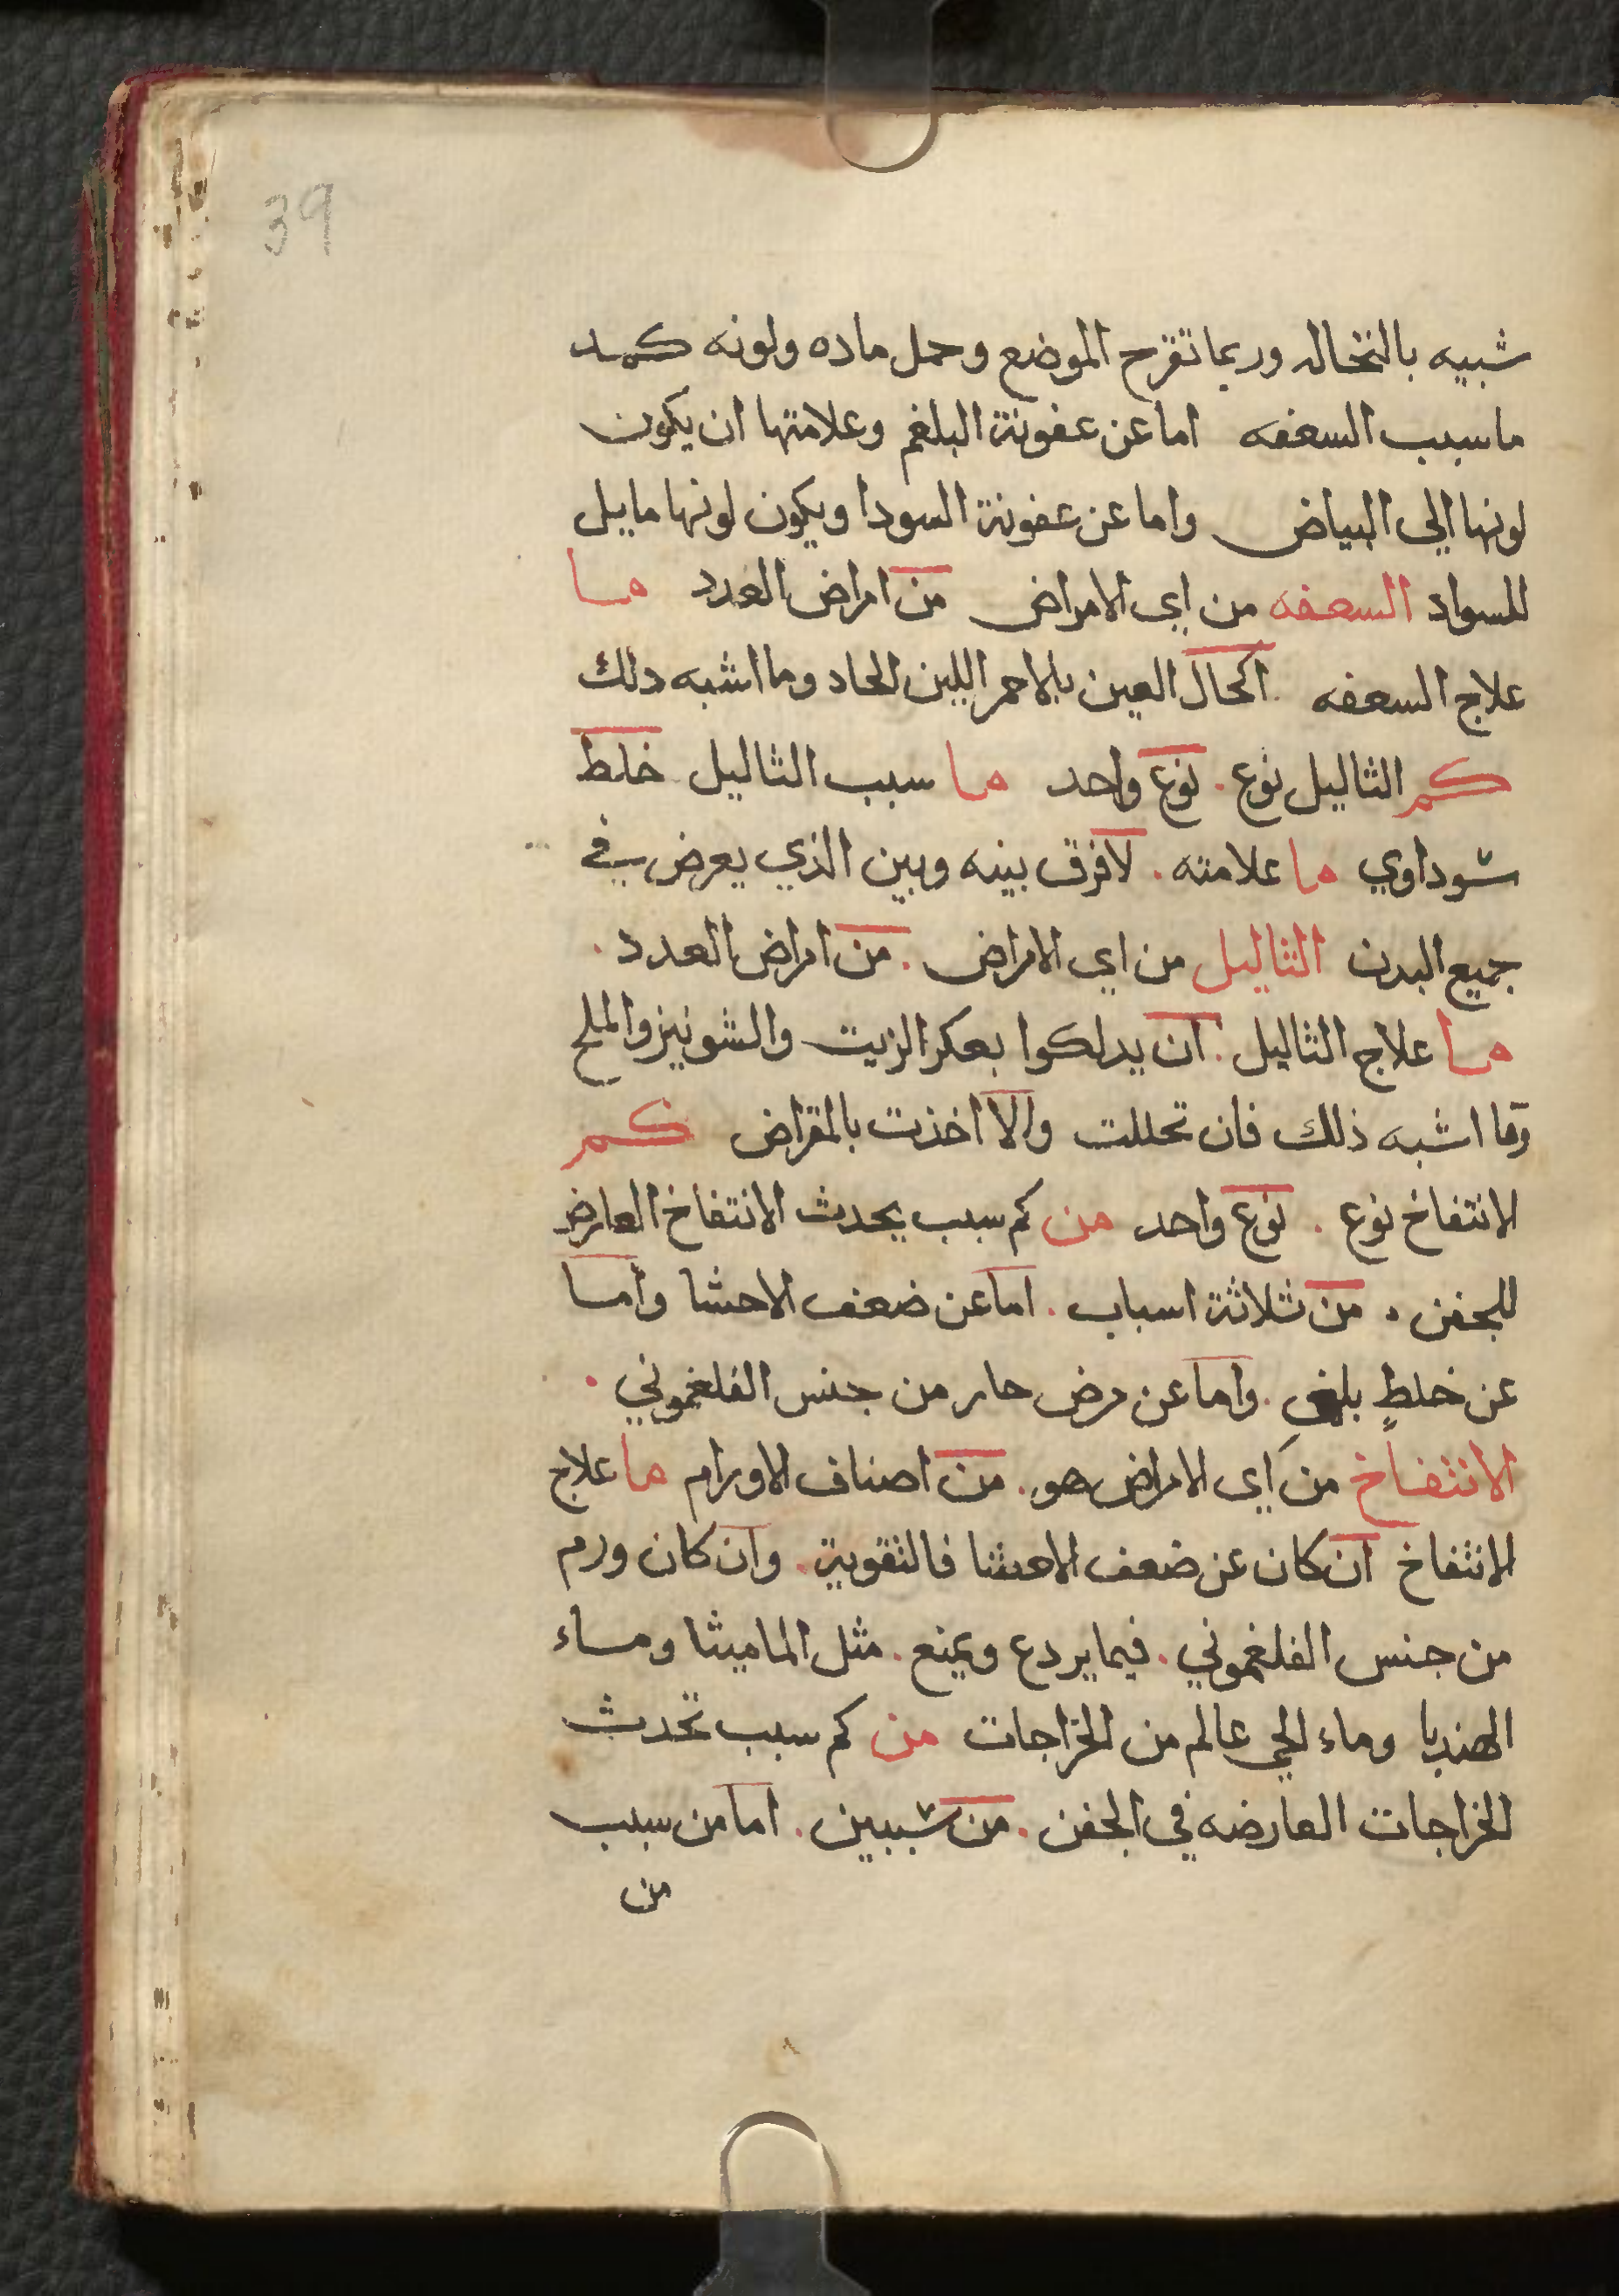 39
شبيه بالنخاله وربما تقرح الموضع وحمل ماده ولونه كمد
ما سبب السعفه اما عن عفونة البلغم وعلامتها ان يكون
لونها الى البياض واما عن عفونة السودا ويكون لونها مايل
للسواد السعفه من اي الامراض من امراض العدد ما
علاج السعفه اكحال العين بالاحمر اللين الحاد وما اشبه دلك
كم الثاليل نوع . نوع واحد ما سبب الثاليل خلط
سوداوي ما علامته . لافرق بينه وبين الذي يعرض في
جميع البدن الثاليل من اي الامراض . من امراض العدد .
ما علاج الثاليل . ان يدلكوا بعكر الزيت والشونيز والملح
وما اشبه ذلك فان تحللت والا اخذت بالمقراض كم
الانتفاخ نوع . نوع واحد من كم سبب يحدث الانتفاخ العارض
للجفن . من ثلاثة اسباب . اما عن ضعف الاحشا واما
عن خلطٍ بلغمي . واما عن مرض حار من جنس الفلغموني .
الانتفاخ من اي الامراض هو . من اصناف الاورام ما علاج
الانتفاخ ان كان عن ضعف الاحشا فالتقوية . وان كان ورم
من جنس الفلغموني . فيما يردع ويمنع . مثل الماميثا وماء
الهندبا وماء الحي عالم من الخراجات من كم سبب تحدث
الخراجات العارضه في الجفن . من سببين . اما من سبب
من